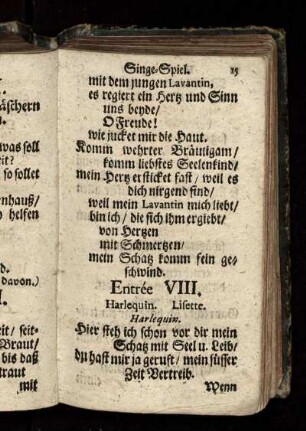 äschern
n.
was soll
eit?
so sollet
enhauß/
helfen
d.
davon.)
I.
eit/ seit-
Braut/
bis daß
traut
mit
Singe-Spiel. 15
mit dem jungen Lavantin,
es regiert ein Hertz und Sinn
uns beyde/
O Freude!
wie jucket mir die Haut.
Komm wehrter Bräutigam/
komm liebstes Seelenkind/
mein Hertz ersticket fast/ weil es
dich nirgend find/
weil mein Lavantin mich liebt/
bin ich/ die sich ihm ergiebt/
von Hertzen
mit Schmertzen/
mein Schatz komm fein ge-
schwind.
Entrée VIII.
Harlequin. Lisette.
Harlequin.
Hier steh ich schon vor dir mein
Schatz mit Seel u. Leib/
du hast mir ja geruft/ mein süsser
Zeit Vertreib.
Wenn